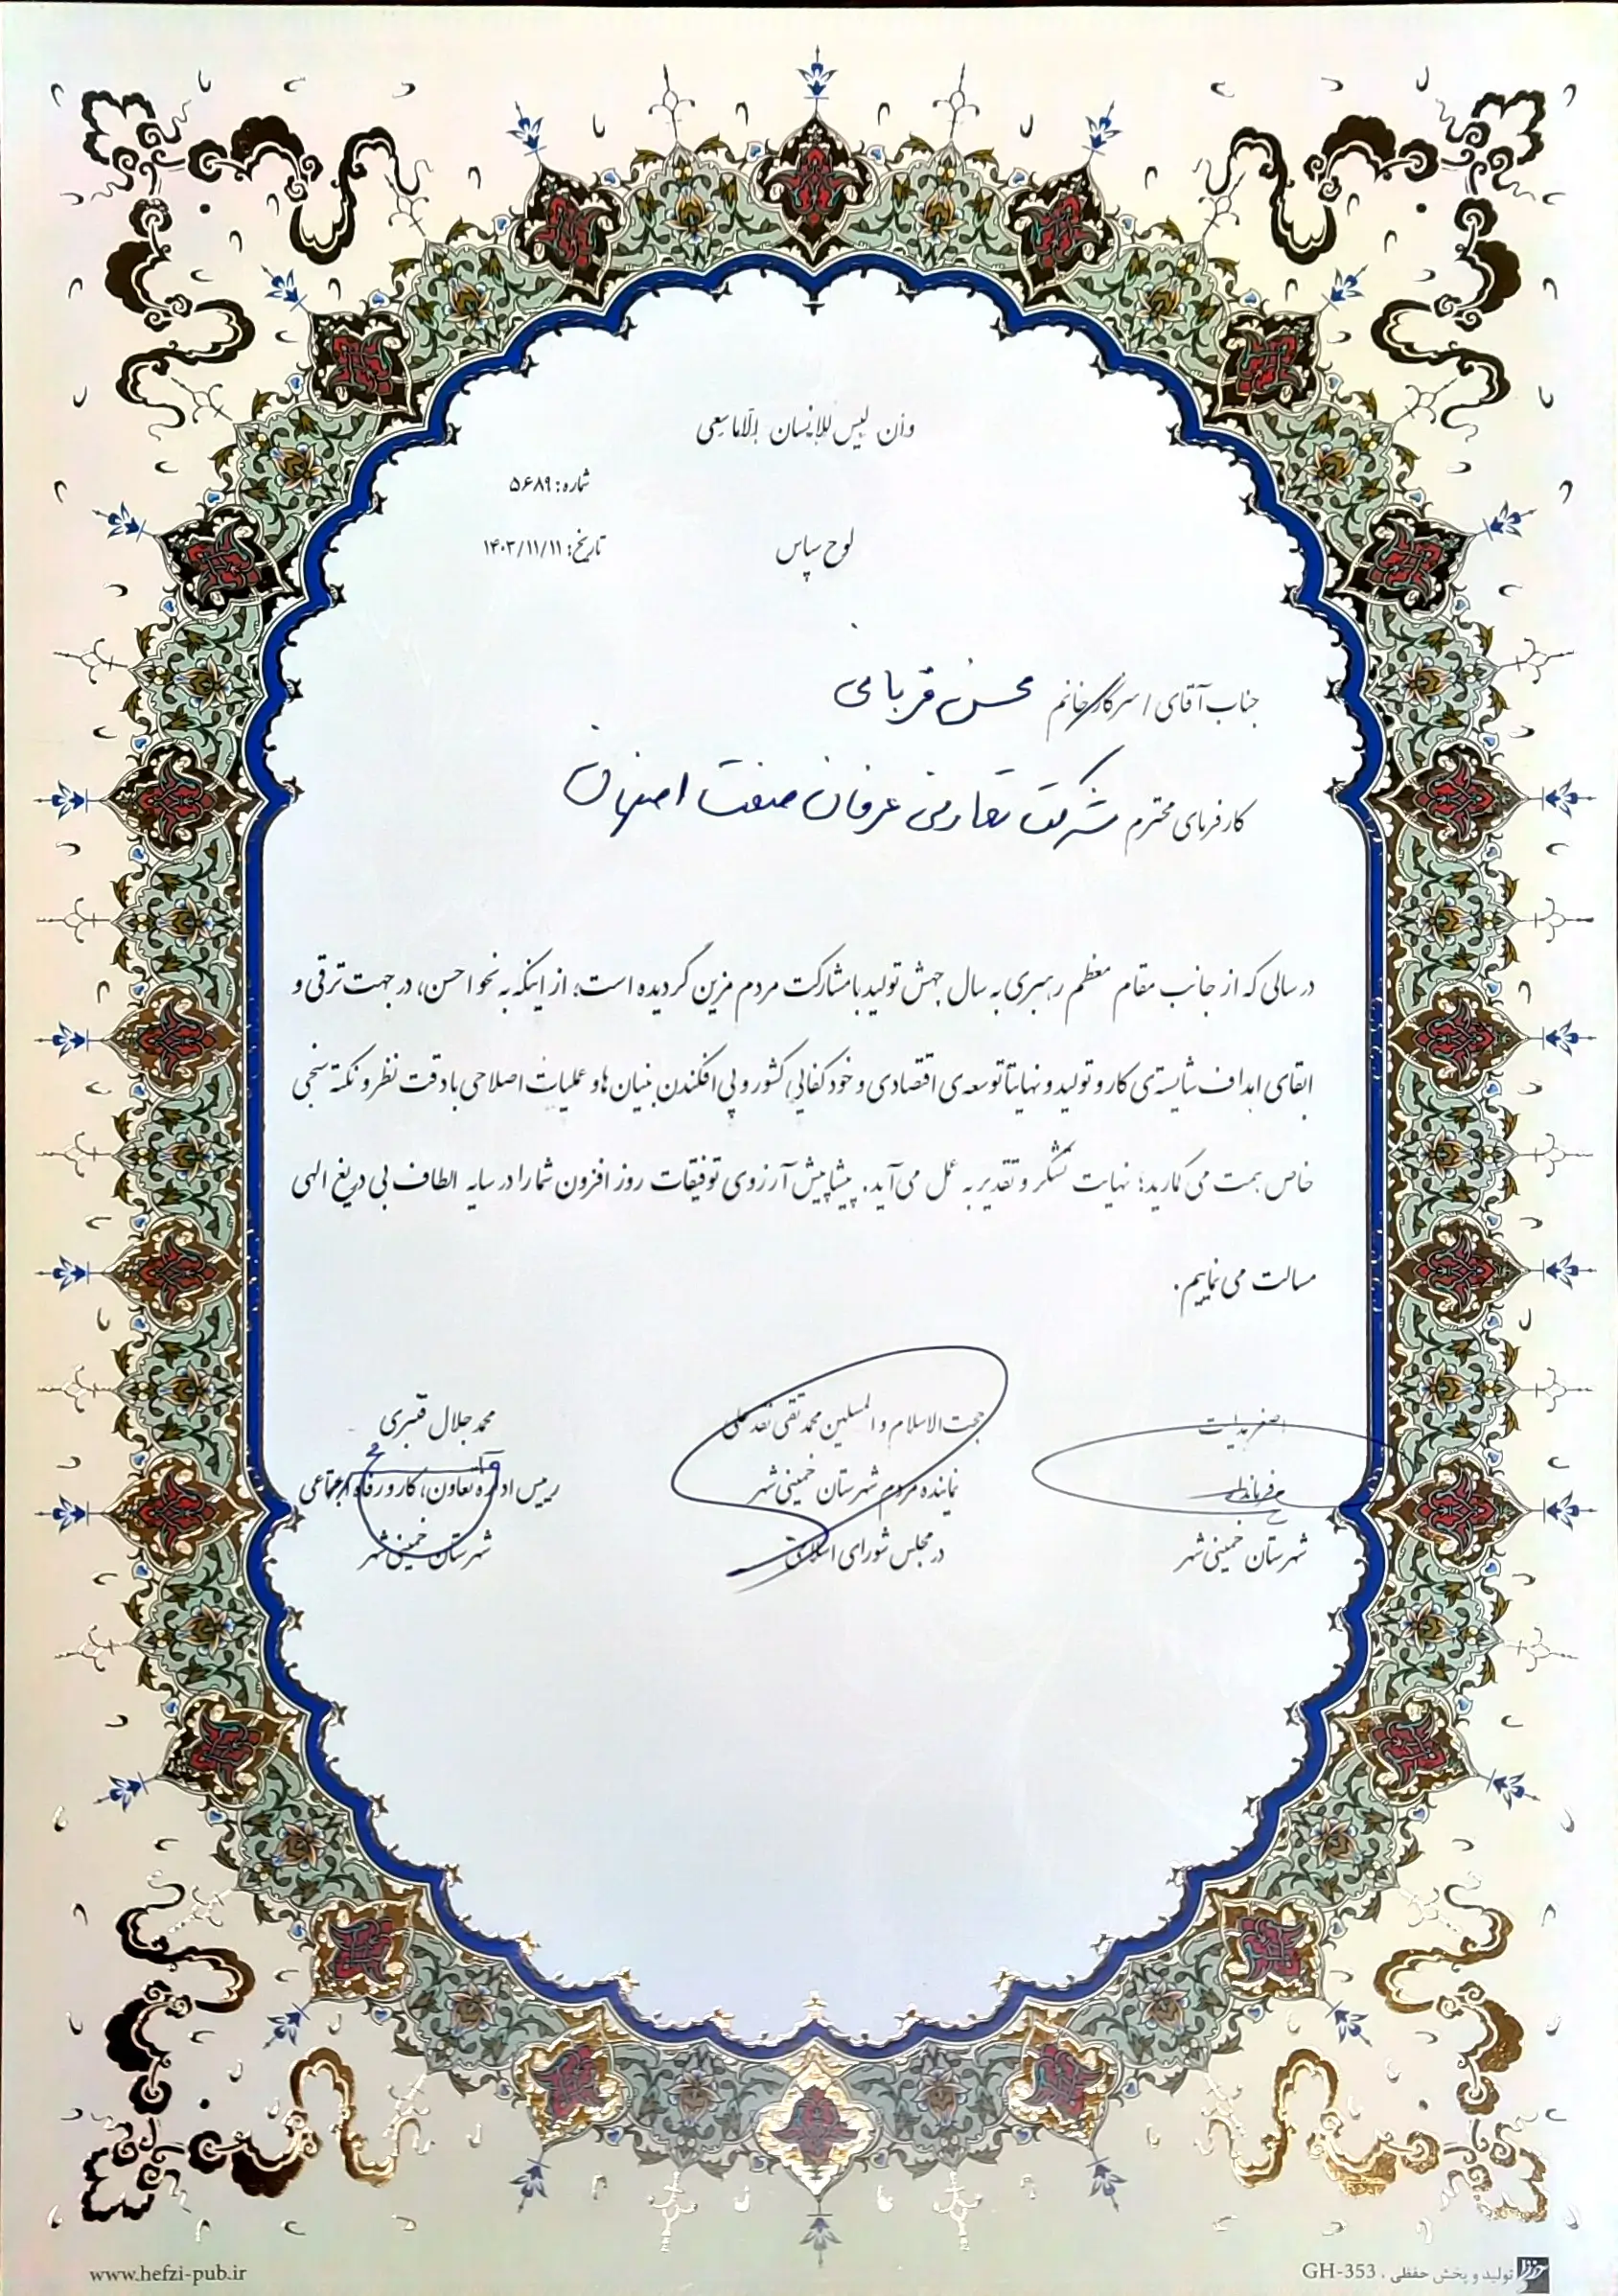 وأن لیس للإنسان إلا ما سعی
شماره: ۵۶۸۹
لوح سپاس
تاریخ: ۱۴۰۳/۱۱/۱۱
جناب آقای / سرکار خانم محسن قربانی
کارفرمای محترم شرکت تعاونی عرفان صنعت اصفهان
در سالی که از جانب مقام معظم رهبری به سال جهش تولید با مشارکت مردم مزین گردیده است؛ از اینکه به نحو احسن، در جهت ترقی و
ابقای اهداف شایسته‌ی کار و تولید و نهایتا توسعه‌ی اقتصادی و خودکفایی کشور و پی افکندن بنیان ها و عملیات اصلاحی با دقت نظر و نکته سنجی
خاص همت می گمارید؛ نهایت تشکر و تقدیر به عمل می‌آید. پیشاپیش آرزوی توفیقات روز افزون شما را در سایه الطاف بی دریغ الهی
مسالت می نماییم.
اصغر هدایت
فرماندار
شهرستان خمینی‌شهر
حجت الاسلام و المسلمین محمد تقی نقدعلی
نماینده مردم شهرستان خمینی‌شهر
در مجلس شورای اسلامی
محمد جلال قنبری
رییس اداره تعاون، کار و رفاه اجتماعی
شهرستان خمینی‌شهر
www.hefzi-pub.ir
تولید و پخش حفظی . GH-353